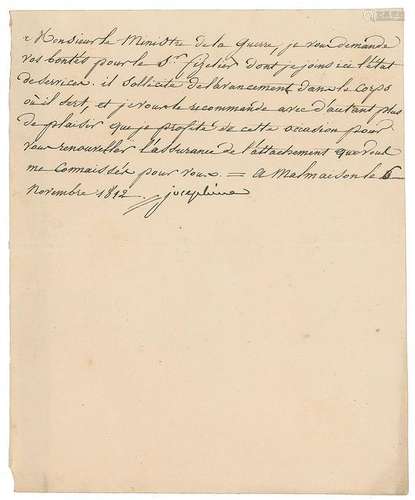 Monsieur le Ministre de la Guerre, je vous demande
vos bontés pour le Sr. dont je joins ici l'état
de services. il sollicite de l'avancement dans le corps
où il sert, et je vous le recommande avec d'autant plus
de plaisir que je profite de cette occasion pour
vous renouveller l'assurance de l'attachement que vous
me connaissés pour vous. = a Malmaison le 6
Novembre 1812 Josephine